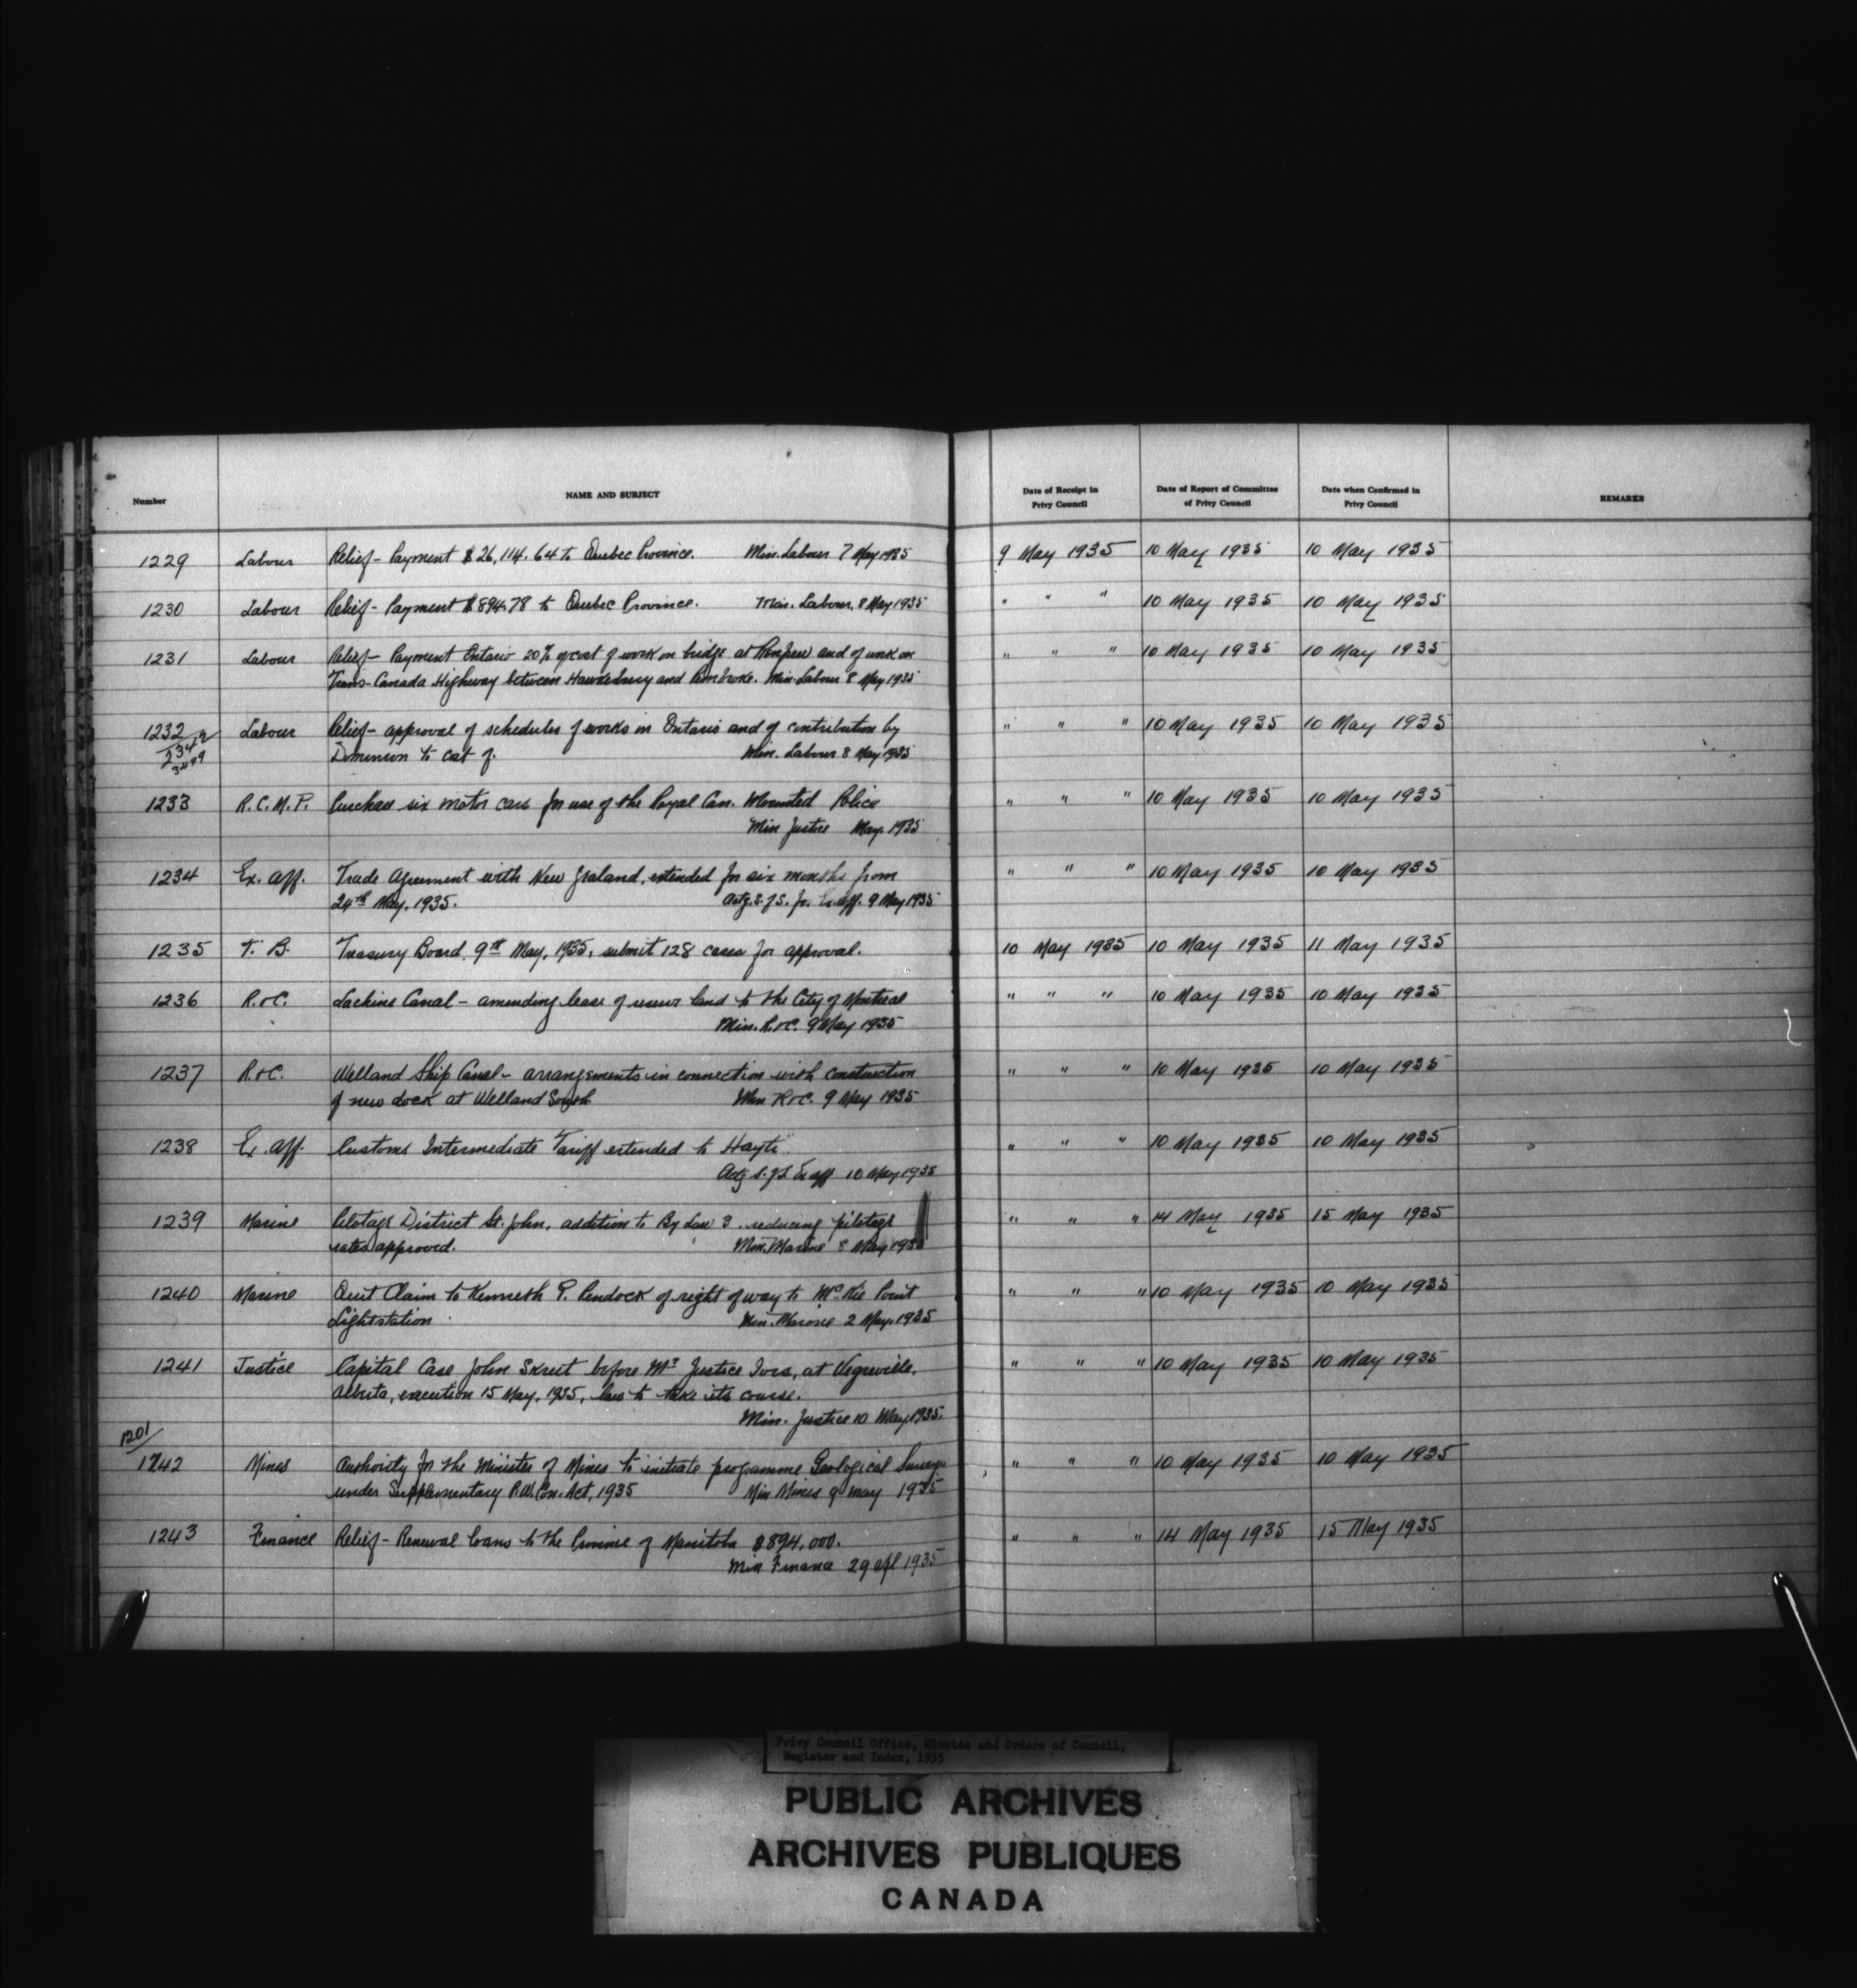 Number NAME AND SUBJECT Date of Receipt in Privy Council Date of Report of Committee of Privy Council Date when Confirmed in Privy Council REMARKS
1229 Labour Relief - Payment $26,114.64 to Quebec Province. Min. Labour 7 May 1935 9 May 1935 10 May 1935 10 May 1935
1230 Labour Relief - Payment $894.78 to Quebec Province. Min. Labour, 8 May 1935 " " " 10 May 1935 10 May 1935
1231 Labour Relief - Payment Ontario 20% of cost of work on bridge at Renfrew and of work on " " " 10 May 1935 10 May 1935
Trans-Canada Highway between Hawkesbury and Pembroke. Min. Labour 8 May 1935
1232 Labour Relief - approval of schedules of works in Ontario and of contribution by " " " 10 May 1935 10 May 1935
Dominion to cost of. Min. Labour 8 May 1935
1233 R.C.M.P. Purchase six motor cars for use of the Royal Can. Mounted Police " " " 10 May 1935 10 May 1935
Min Justice May 1935
1234 Ex. Aff. Trade Agreement with New Zealand, extended for six months from " " " 10 May 1935 10 May 1935
24th May, 1935. Actg. S. of S. for Ex. Aff. 9 May 1935
1235 T. B. Treasury Board, 9th May, 1935, submit 128 cases for approval. 10 May 1935 10 May 1935 11 May 1935
1236 R. & C. Lachine Canal - amending lease of reserve land to the City of Montreal " " " 10 May 1935 10 May 1935
Min. R. & C. 9 May 1935
1237 R. & C. Welland Ship Canal - arrangements in connection with construction " " " 10 May 1935 10 May 1935
of new dock at Welland South Min R & C. 9 May 1935
1238 Ex. Aff. Customs Intermediate Tariff extended to Hayti. " " " 10 May 1935 10 May 1935
Actg S. of S Ex Aff 10 May 1935
1239 Marine Pilotage District St. John, addition to By Law 3 reducing pilotage " " " 14 May 1935 15 May 1935
rates approved. Min. Marine 8 May 1935
1240 Marine Quit Claim to Kenneth P. Pendock of right of way to McKie Point " " " 10 May 1935 10 May 1935
Lightstation. Min. Marine 2 May 1935
1241 Justice Capital Case John Skreet before Mr Justice Ives, at Vegreville, " " " 10 May 1935 10 May 1935
Alberta, execution 15 May, 1935, law to take its course.
Min. Justice 10 May 1935.
1201
1242 Mines Authority for the Minister of Mines to initiate programme Geological Surveys " " " 10 May 1935 10 May 1935
under Supplementary P.W. Con. Act, 1935 Min Mines 9 May 1935
1243 Finance Relief - Renewal loans to the Province of Manitoba $894,000. " " " 14 May 1935 15 May 1935
Min Finance 29 Apl 1935
Privy Council Office, Minutes and Orders of Council,
Register and Index, 1935
PUBLIC ARCHIVES
ARCHIVES PUBLIQUES
CANADA